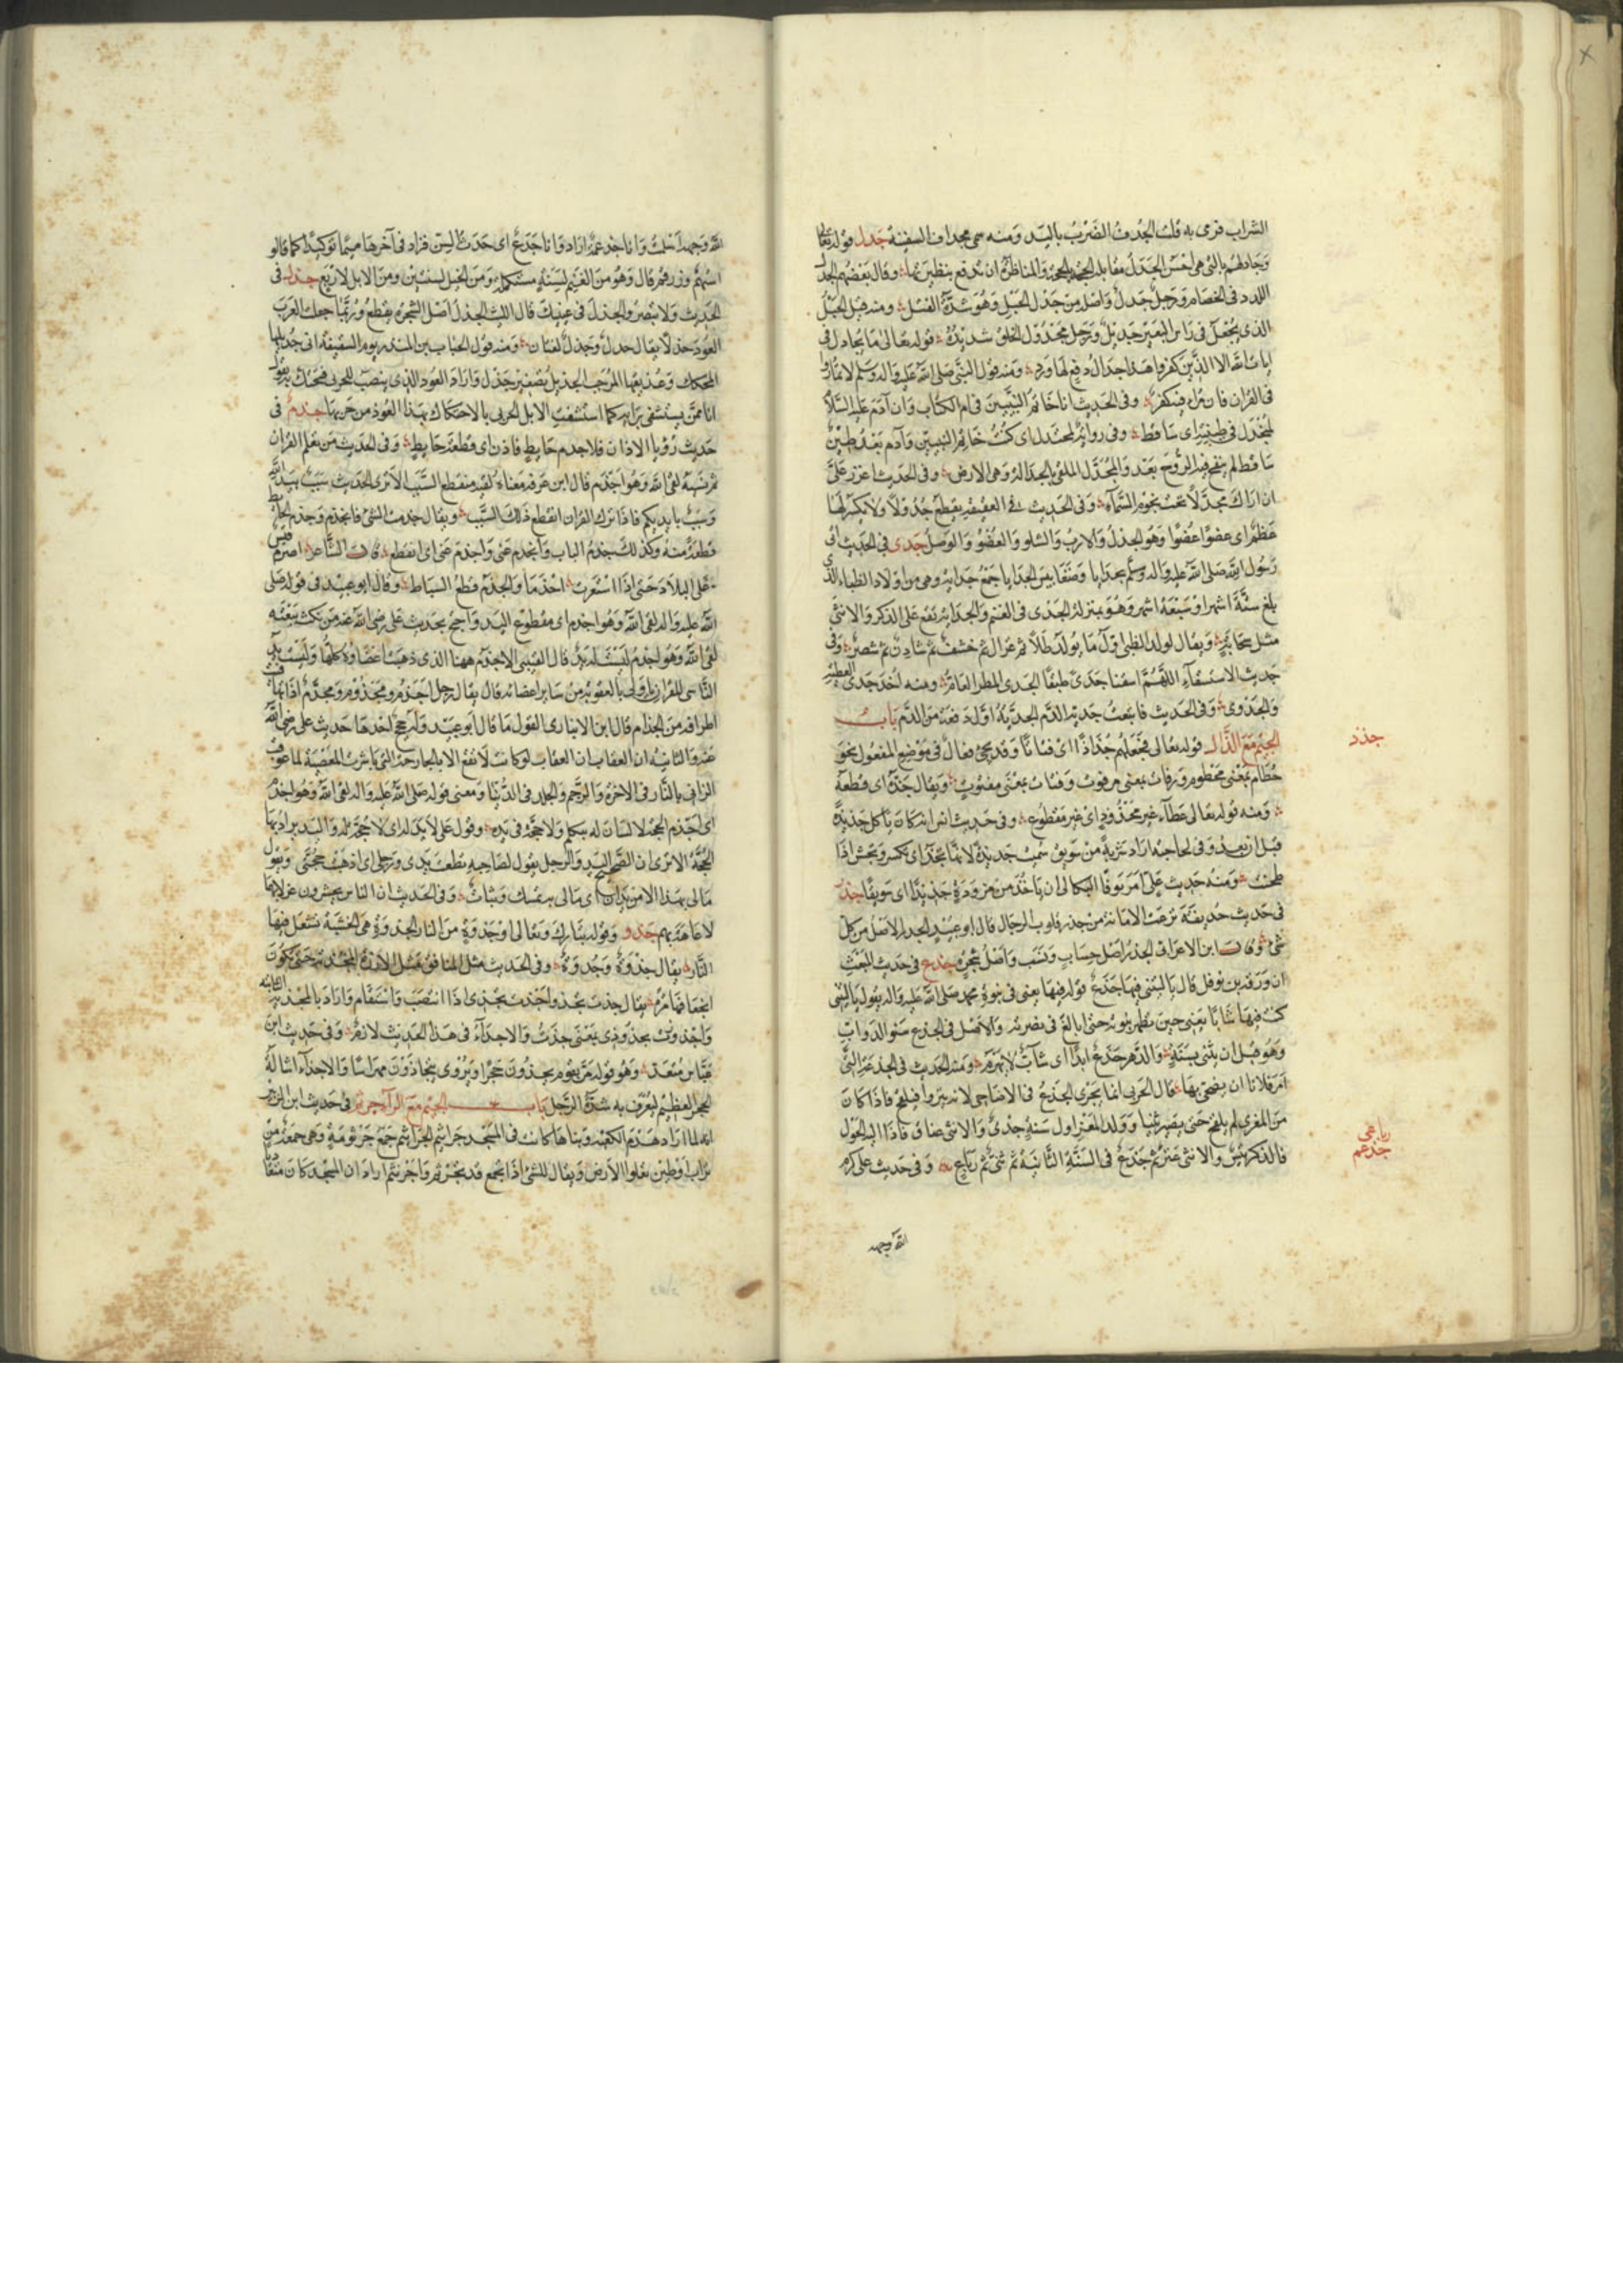 الشراب فرمى به قلت الجدف الضرب باليد ومنه سمي مجداف السفينة جدل قوله تعالى
وجادلهم بالتي هي احسن الجدل مقابلة الحجة بالحجة والمناظرة ان وقال بعضهم الجدل
اللدد في الخصام ورجل جدل واصله من جدل الحبل وهو شدة الفتل ومنه قيل للحبل
الذي يجعل في راس البعير جديل ورجل مجدول الخلق شديدة قوله تعالى ما يجادل في
ايات الله الا الذين كفروا هذا جدال دفع لها ورد ومنه قول النبي صلى الله عليه واله وسلم لا تماروا
في القران فان مراء فيه كفر وفي الحديث انا خاتم النبيين في ام الكتاب وان آدم عليه السلام
لمنجدل في طينته اي ساقط وفي رواية لمجندل اي كنت خاتم النبيين وآدم بعد طين
ساقط لم ينفخ فيه الروح بعد والمجدل الملقى بالجدالة وهي الارض وفي الحديث اعزز علي
ان اراك مجدلا تحت نجوم السماء وفي الحديث في العقيقة يقطع جدولا ولا يكسر لها
عظم اي عضوا عضوا وهو الجدل والارب والشلو والعضو والوصل جدى في الحديث اتى
رسول الله صلى الله عليه واله وسلم بجدايا وضغابيس الجدايا جمع جداية وهي من اولاد الظباء الذي
بلغ ستة اشهر او سبعة اشهر وهو بمنزلة الجدى في الغنم والجداية تقع على الذكر والانثى
مثل ويقال لولد الظبي اول ما يولد طلا ثم غزال ثم خشف ثم شادن ثم شصر وفي
حديث الاستسقاء اللهم اسقنا جدى طبقا الجدى المطر العام ومنه اخذ جدى العطية
والجدوى وفي الحديث فاتبعت جدية الدم الجدية اول دفعة من الدم باب
الجيم مع الذال قوله تعالى فجعلهم جذاذا اي فتاتا وقد يجيء فعال في موضع المفعول نحو
حطام بمعنى محطوم ورفات بمعنى مرفوت وفتات بمعنى مفتوت ويقال جذه اي قطعه
ومنه قوله تعالى عطاء غير مجذوذ اي غير مقطوع وفي حديث انس انه كان ياكل جذيذة
قبل ان يغدو في حاجته اراد شربة من سويق سميت جذيذة لانها تجذ اي تكسر وتجش اذا
طحنت ومنه حديث علي امر نوفا البكالي ان ياخذ من مزوده جذيذا اي سويقا جذر
في حديث حذيفة نزلت الامانة من جذر قلوب الرجال قال ابو عبيد الجذر الاصل من كل
شيء وقال ابن الاعرابي الجذر اصل حساب ونسب واصل شجرة جذع في حديث المبعث
ان ورقة بن نوفل قال يا ليتني فيها جذع قوله فيها يعني في نبوة محمد صلى الله عليه واله يقول يا ليتني
كنت فيها شابا يعني حين تظهر نبوته حتى ابالغ في نصرته والاصل في الجذع سنو الدواب
وهو قبل ان يثني بسنة والدهر جذع ابدا اي شاب لا يهرم ومنه الحديث في الجذعة التي
امر فلانا ان يضحي بها قال الحربي انما يجزى الجذع في الاضاحي لانه ينزو فيلقح فاذا كان
من المعزى لم يلقح حتى يصير ثنيا وولد المعز اول سنة جدى والانثى عناق فاذا اتى الحول
فالذكر تيس والانثى عنز ثم جذع في السنة الثانية ثم ثنى ثم رباع وفي حديث علي كرم
جذذ
رباعي
جذعم
الله وجهه
الله وجهه اسلمت وانا جذعمة اراد وانا جذع اي حدث السن فزاد في آخرها ميما توكيدا كما قالوا
ستهم وزرقم قال وهو من الغنم لسنة مستكملة ومن الخيل لسنتين ومن الابل لاربع جذل في
الحديث ولا تبصر والجذل في عينك قال الليث الجذل اصل الشجرة يقطع وربما جعلت العرب
العود جذلا يقال جذل وجذل لغتان ومنه قول الحباب بن المنذر يوم السقيفة انا جذيلها
المحكك وعذيقها المرجب الجذيل تصغير جذل واراد العود الذي ينصب للجربى فتحتك به يقول
انا ممن يستشفى برايه كما استشفت الابل الجربى بالاحتكاك بهذا العود من جربها جذم في
حديث رؤيا الاذان فعلا جذم حايط فاذن اي قطعة حايط وفي الحديث من تعلم القران
ثم نسيه لقي الله وهو اجذم قال ابن عرفة معناه لقيه منقطع السبب الا ترى الحديث سبب بيد الله
وسبب بايديكم فاذا ترك القران انقطع ذلك السبب ويقال جذمت الشيء فانجذم وجذم الحايط
قطعة منه وكذلك جذم الباب وانجذم عني واجذم عني اي انقطع قال الشاعر اصرم قيس
على البلاد حتى اذا استعرت اجذما والجذم قطع السياط وقال ابو عبيد في قوله صلى
الله عليه واله لقي الله وهو اجذم اي مقطوع اليد واحتج بحديث علي رضي الله عنه من نكث بيعته
لقي الله وهو اجذم ليست له يد قال القتيبي الاجذم ههنا الذي ذهبت اعضاؤه كلها وليست يد
الناسي للقران اولى بالعقوبة من ساير اعضائه قال يقال رجل اجذم ومجذوم ومجذم اذا تهافتت
اطرافه من الجذام قال ابن الانباري القول ما قال ابو عبيد وله حجج احدها حديث علي رضي الله
عنه والثانية ان العقاب لو كانت لا تقع الا بالجارحة التي باشرت المعصية لما عوقب
الزاني بالنار في الاخرة والرجم والجلد في الدنيا ومعنى قوله صلى الله عليه واله لقي الله وهو اجذم
اي اجذم الحجة لا لسان له يتكلم ولا حجة في يده وقول علي لا يد له اي لا حجة له واليد يراد بها
الحجة الا ترى ان الصحيح اليد والرجل يقول لصاحبه قطعت يدي ورجلي اي اذهبت حجتي ويقول
مالي بهذا الامر يدان اي مالي به تمسك وثبات وفي الحديث ان الناس يحشرون غرلا بهما
لا عاهة بهم جذو وقوله تبارك وتعالى او جذوة من النار الجذوة هي الخشبة تشتعل فيها
النار يقال جذوة وجذوة وفي الحديث مثل المنافق مثل الارزة المجذية حتى يكون
انجعافها مرة يقال جذت تجذو واجذت تجذي اذا انتصب واستقام واراد بالمجذية الثابتة
واجذوذت تجذوذي بمعنى جذت والاجذاء في هذا الحديث لازم وفي حديث ابن
عباس متعد وهو قوله مر بقوم يجذون حجرا ويروى يتجاذون مهراسا والاجذاء اشالة
الحجر العظيم ليعرف به شدة الرجل باب الجيم مع الراء جرثم في حديث ابن الزبير
انه لما اراد هدم الكعبة وبناها كانت في المسجد جراثيم الجراثيم جمع جرثومة وهي جمعة من
تراب او طين تعلو الارض ويقال للشيء اذا تجمع قد تجرثم واجرنثم اراد ان المسجد كان متقا